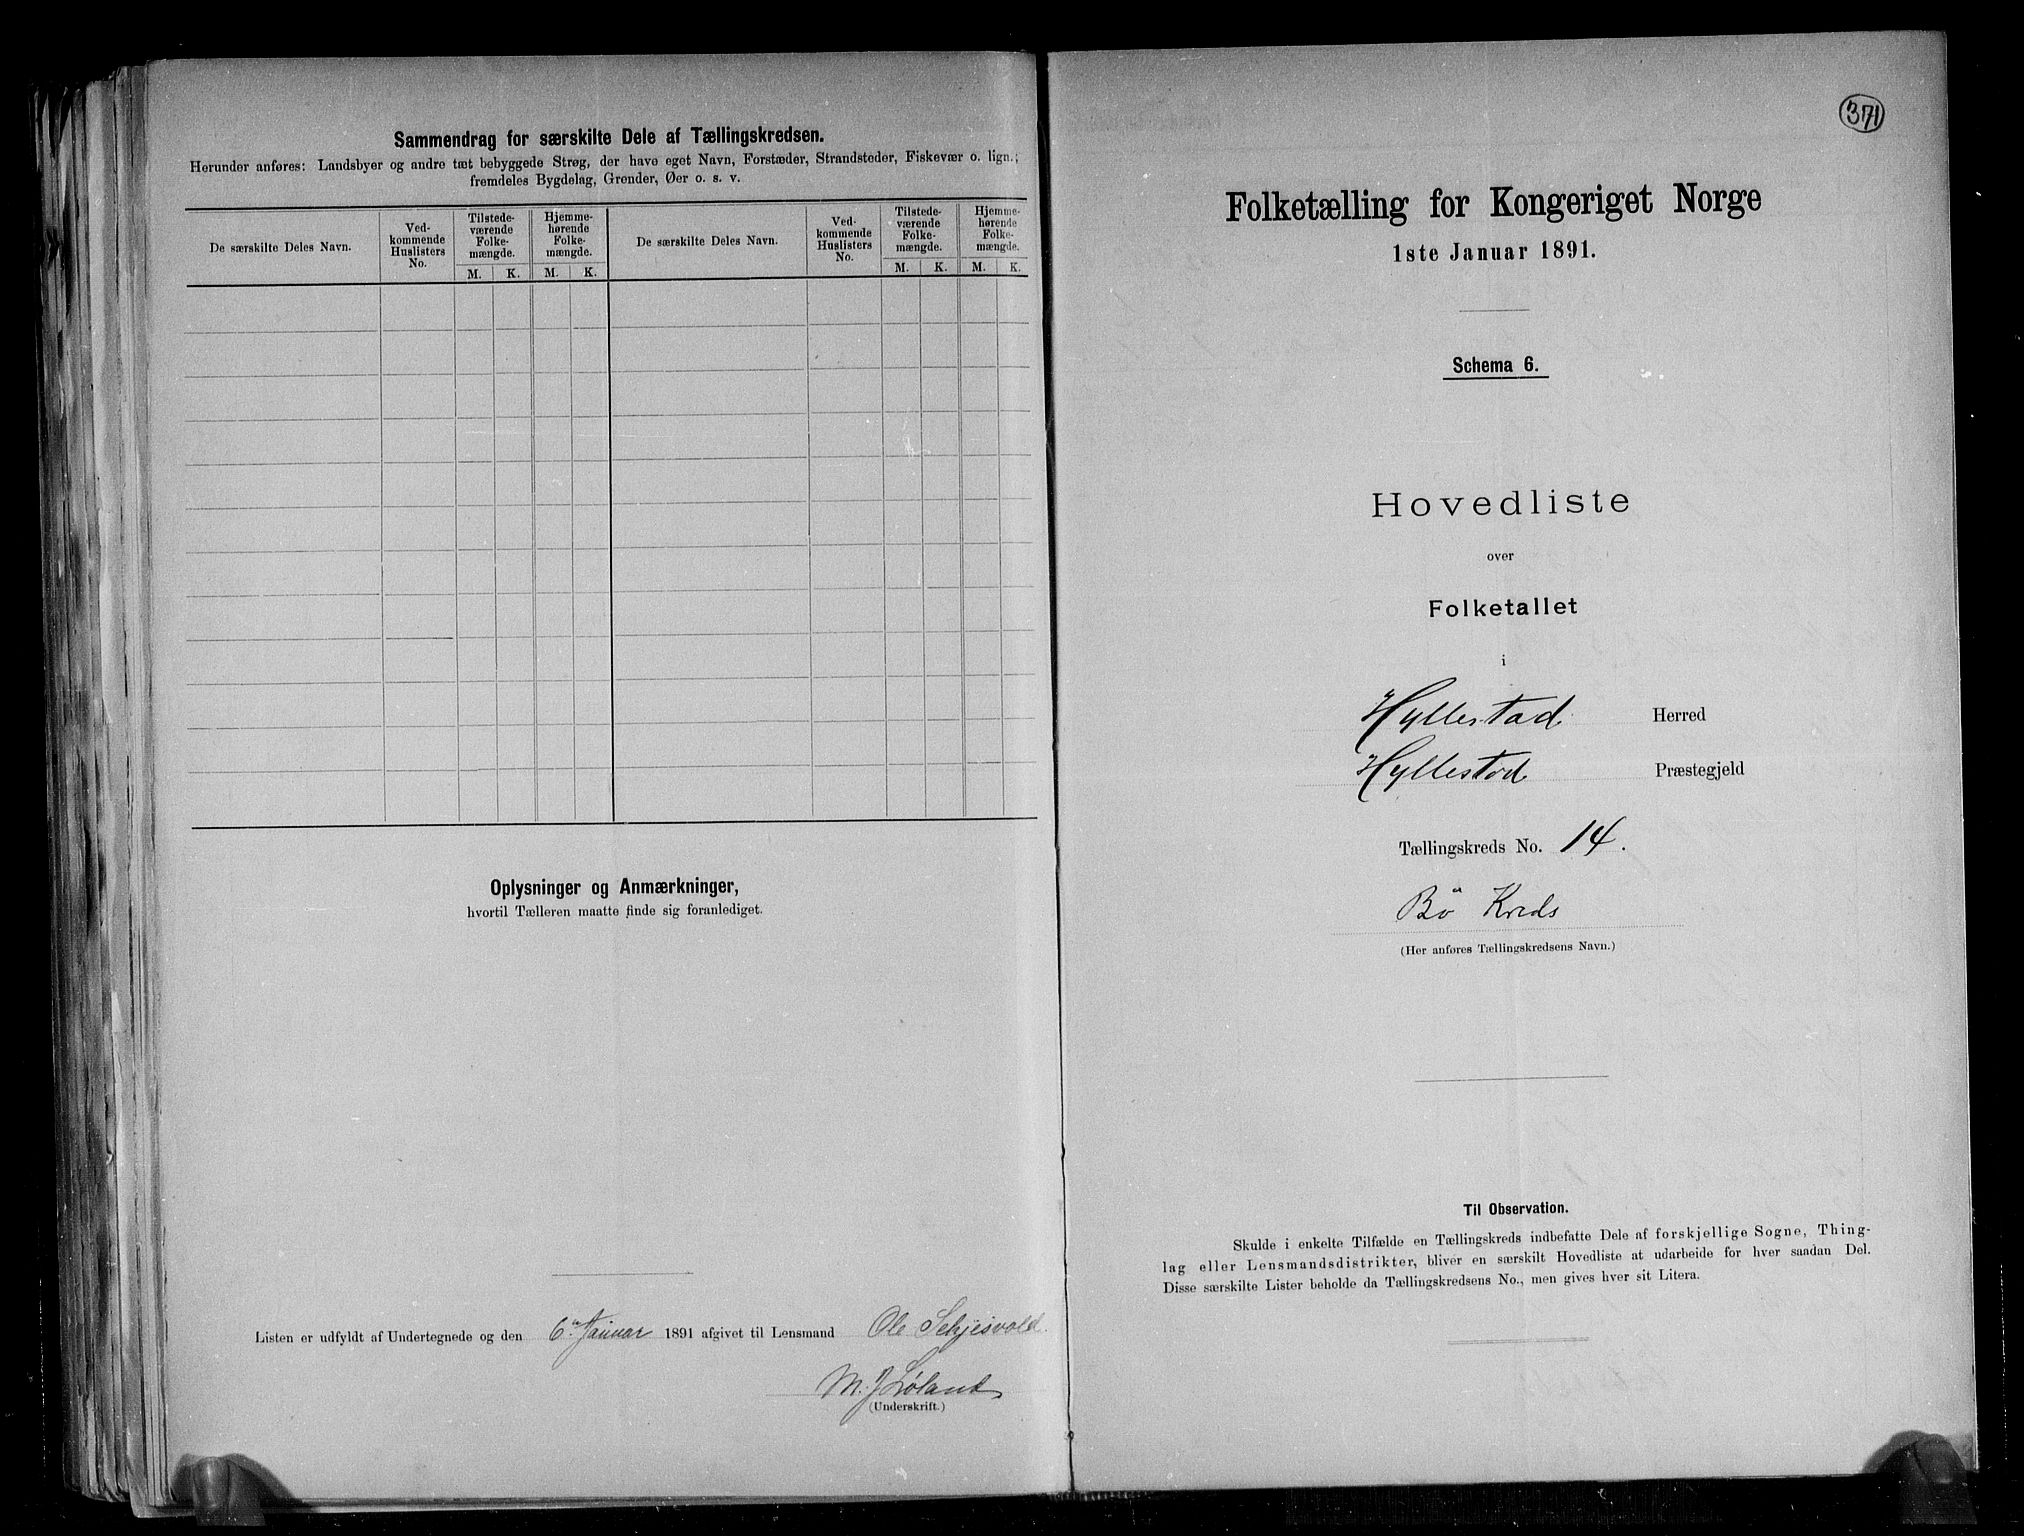 Sammendrag for særskilte Dele af Tællingskredsen.
Herunder anføres: Landsbyer og andre tæt bebyggede Strøg, der have eget Navn, Forstæder, Strandsteder, Fiskevær o. lign.;
fremdeles Bygdelag, Grender, Øer o. s. v.
De særskilte Deles Navn.
Ved-
kommende
Huslisters
No.
Tilstede-
værende
Folke-
mængde.
Hjemme-
hørende
Folke-
mængde.
De særskilte Deles Navn.
Ved-
kommende
Huslisters
No.
Tilstede-
værende
Folke-
mængde.
Hjemme-
hørende
Folke-
mængde.
M. K. M. K. M. K. M. K.
Oplysninger og Anmærkninger,
hvortil Tælleren maatte finde sig foranlediget.
Listen er udfyldt af Undertegnede og den 6 Januar 1891 afgivet til Lensmand Ole
M. J. Løland
(Underskrift.)
371
Folketælling for Kongeriget Norge
1ste Januar 1891.
Schema 6.
Hovedliste
over
Folketallet
i
Hyllestad Herred
Hyllestad Præstegjeld
Tællingskreds No. 14.
Bö Kreds
(Her anføres Tællingskredsens Navn.)
Til Observation.
Skulde i enkelte Tilfælde en Tællingskreds indbefatte Dele af forskjellige Sogne, Thing-
lag eller Lensmandsdistrikter, bliver en særskilt Hovedliste at udarbeide for hver saadan Del.
Disse særskilte Lister beholde da Tællingskredsens No., men gives hver sit Litera.